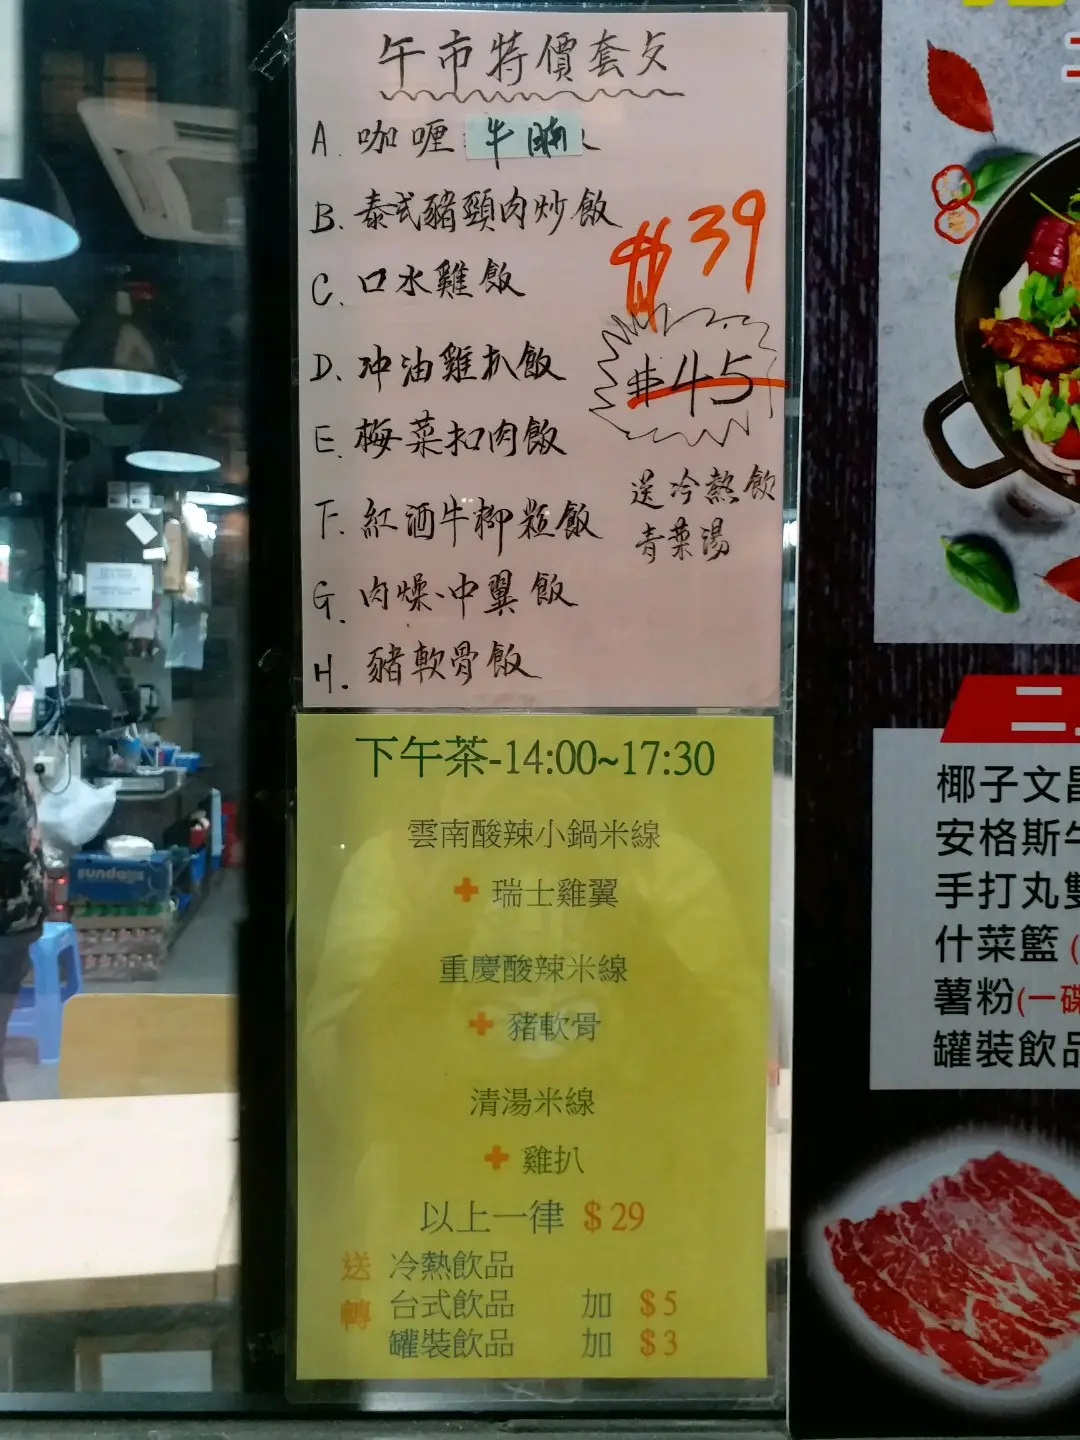 午市特價套攵
A. 咖喱牛腩
B. 泰式豬頸肉炒飯
C. 口水雞飯
D. 沖油雞扒飯
E. 梅菜扣肉飯
F. 紅酒牛柳粒飯
G. 肉燥、中翼飯
H. 豬軟骨飯
$39
$45
送冷熱飲
青菜湯
下午茶-14:00~17:30
雲南酸辣小鍋米線
+ 瑞士雞翼
重慶酸辣米線
+ 豬軟骨
清湯米線
+ 雞扒
以上一律 $29
送 冷熱飲品
轉 台式飲品 加 $5
罐裝飲品 加 $3
二
椰子文昌
安格斯牛
手打丸雙
什菜籃(
薯粉(一碟
罐裝飲品
sundays